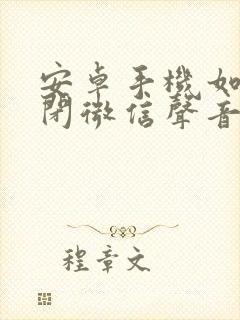 安卓手機如
閉微信聲音
程章文